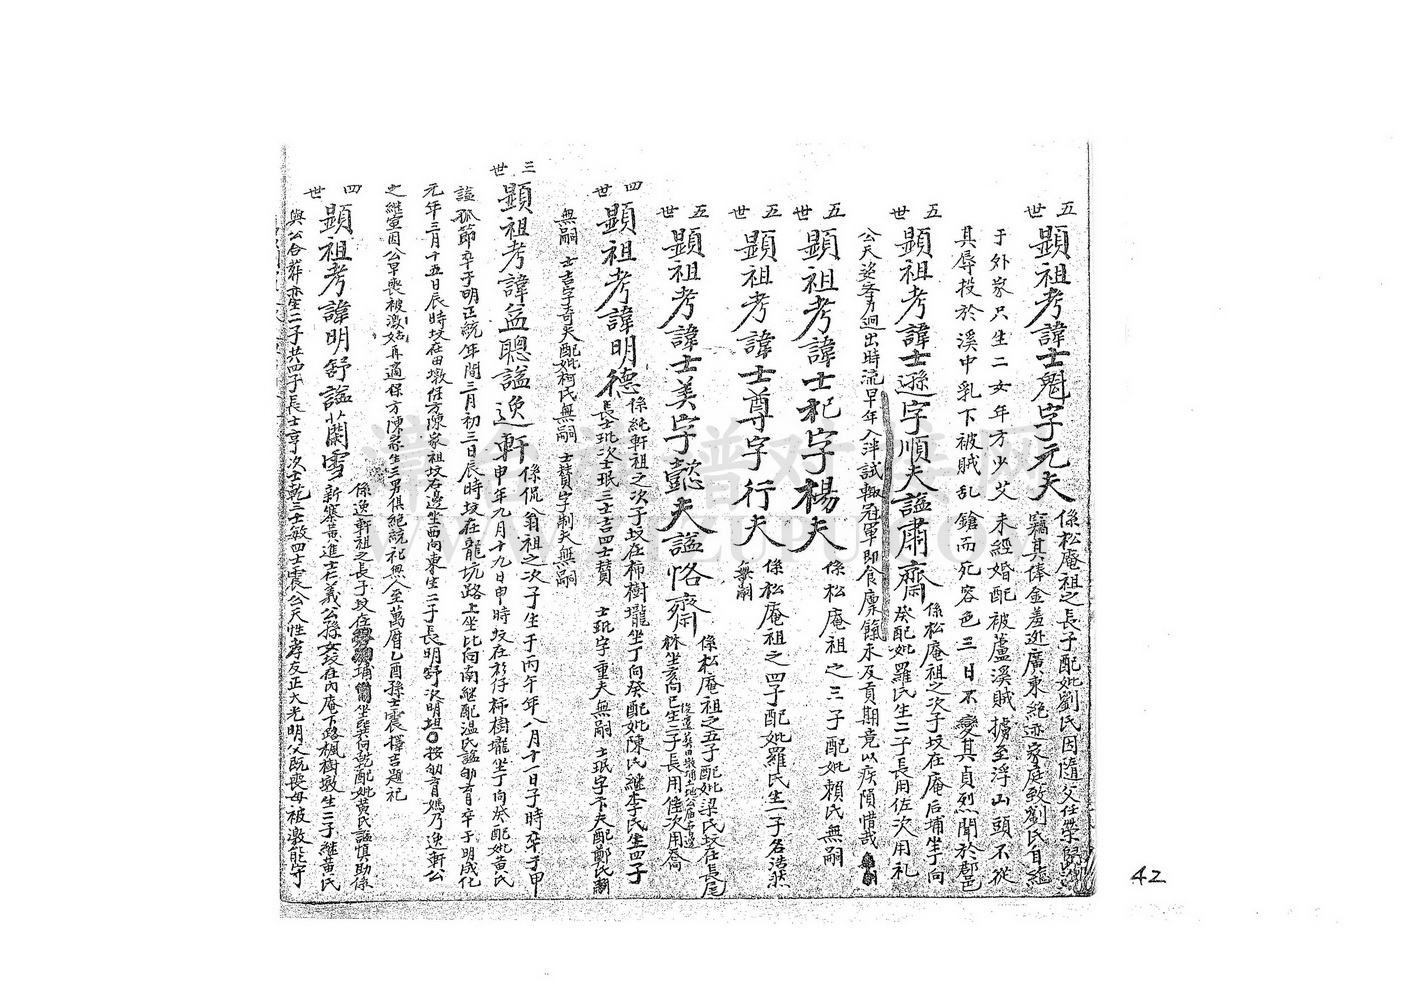 五世
顯祖考諱士魁字元夫
係松庵祖之長子配妣劉氏因隨父任學
竊其俸金羞逃廣東絕迹家庭致劉氏自縊
于外家只生二女年方少艾未經婚配被蘆溪賊擄至浮山頭不從
其辱投於溪中乳下被賊乱鎗而死容色三日不變其貞烈聞於郡邑
五世
顯祖考諱士遜字順夫謚肅齋
係松庵祖之次子坟在庵后埔坐丁向
癸配妣羅氏生二子長用佐次用礼
公天姿秀迥出時流早年入泮試輙冠軍即食廩餼未及貢期竟以疾隕惜哉
五世
顯祖考諱士杞字楊夫
係松庵祖之三子配妣賴氏無嗣
五世
顯祖考諱士尊字行夫
係松庵祖之四子配妣羅氏生一子名浩然
無嗣
五世
顯祖考諱士美字懿夫謚恪齋
係松庵祖之五子配妣梁氏坟在長尾
林坐亥向巳生二子長用佳次用喬
四世
顯祖考諱明德
係純軒祖之次子坟在柿樹壠坐丁向癸配妣陳氏繼李氏生四子
長士玼次士珉三士吉四士贊 士玼字重夫無嗣 士珉字卞夫配鄭氏無嗣
無嗣 士吉字奇夫配妣柯氏無嗣 士贊字制夫無嗣
三世
顯祖考諱孟聰謚逸軒
係侃翁祖之次子生于丙午年八月十一日子時卒于甲
申年九月十九日申時坟在衫仔柿樹壠坐丁向癸配妣黄氏
謚孤節卒于明正統年間三月初三日辰時坟在龍坑路上坐北向南継配温氏謚劬育卒于明成化
元年三月十五日辰時坟在田墩任方陳家祖坟右邊坐西向東生二子長明舒次明坦 按劬育媽乃逸軒公
之継室因公早喪被激姑再適保方陳家生三男俱絕統祀無人至萬曆乙酉孫士震擇吉題祀
四世
顯祖考諱明舒謚蘭雪
係逸軒祖之長子坟在埔坐巽向乾配妣黄氏謚慎助係
新寨黃進士仁義公孫女坟在内庵下路楓樹墩生二子継黄氏
與公合葬亦生二子共四子長士亨次士乾三士敏四士震公天性孝友正大光明父既喪母被激能守
42